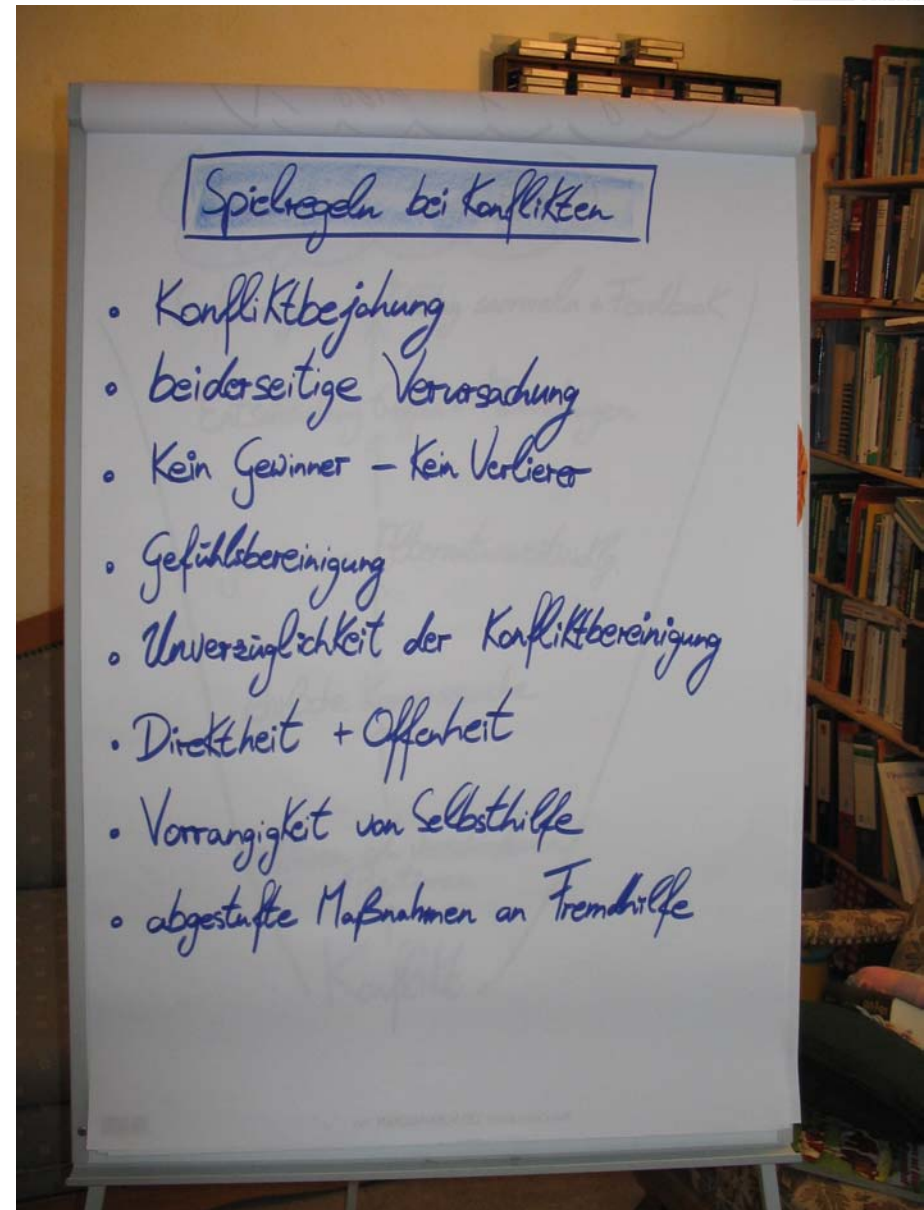 Spielregeln bei Konflikten
• Konfliktbejahung
• beiderseitige Verursachung
• Kein Gewinner – Kein Verlierer
• Gefühlsbereinigung
• Unverzüglichkeit der Konfliktbereinigung
• Direktheit + Offenheit
• Vorrangigkeit von Selbsthilfe
• abgestufte Maßnahmen an Fremdhilfe
Konflikt